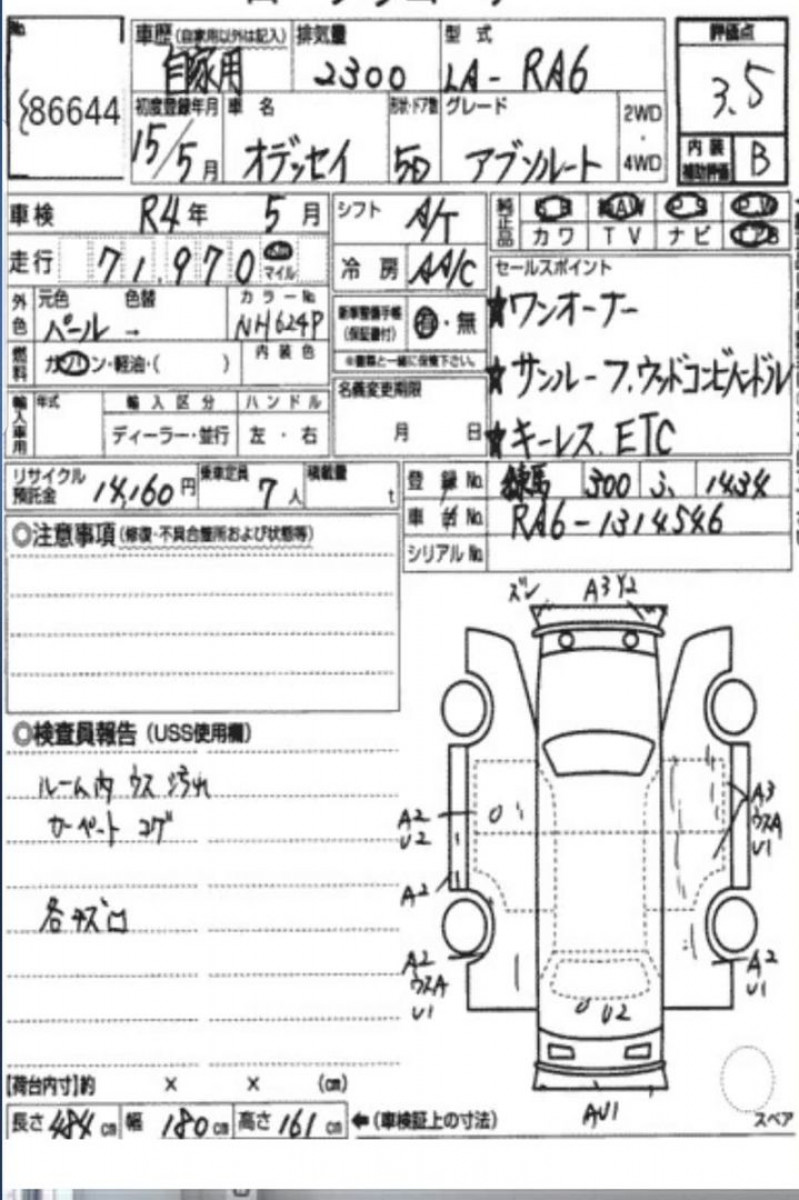 No.
86644
車歴(自家用以外は記入)
自家用
排気量
2300
型式
LA-RA6
評価点
3.5
初度登録年月
15/5月
車名
オデッセイ
形状・ドア数
5D
グレード
アブソルート
2WD・4WD
内装補助評価
B
車検 R4年 5月
シフト A/T
純正品
AW PS PW
カワ TV ナビ
走行 71,970 マイル
冷房 AA/C
セールスポイント
★ワンオーナー
★サンルーフ.ウッドコンビハンドル
★キーレス.ETC
外色
元色 パール
色替 →
カラーNo. NH624P
新車整備手帳(保証書付) 有・無
※書類と一緒に保管下さい。
燃料
ガソリン・軽油・( )
内装色
名義変更期限
月 日
輸入車用
年式
輸入区分
ディーラー・並行
ハンドル
左・右
リサイクル預託金 14,160円
乗車定員 7人
積載量 t
登録No. 練馬 300 ふ 1434
車台No. RA6-1314546
シリアルNo.
◎注意事項(修復・不具合箇所および状態等)
◎検査員報告(USS使用欄)
ルーム内 ウス 汚れ
カーペート コゲ
各キズロ
ズレ A3 Y2
A2
U2
A2
A2
ウスA
U1
A3
ウスA
U1
A2
U1
U2
AU1
スペア
【荷台内寸】約 × × (cm)
長さ 484cm 幅 180cm 高さ 161cm ←(車検証上の寸法)